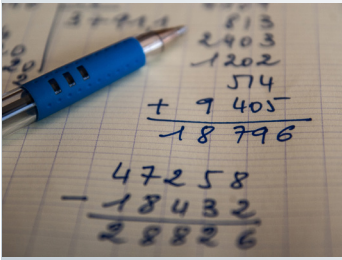 813
2903
1202
514
+ 9 405
18 796
47258
- 18432
28826